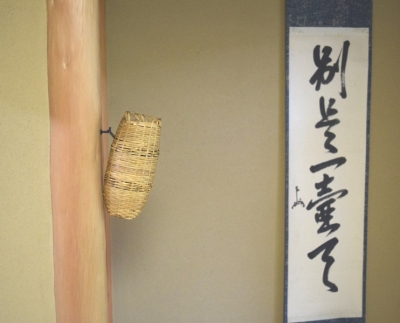 別是一壷天